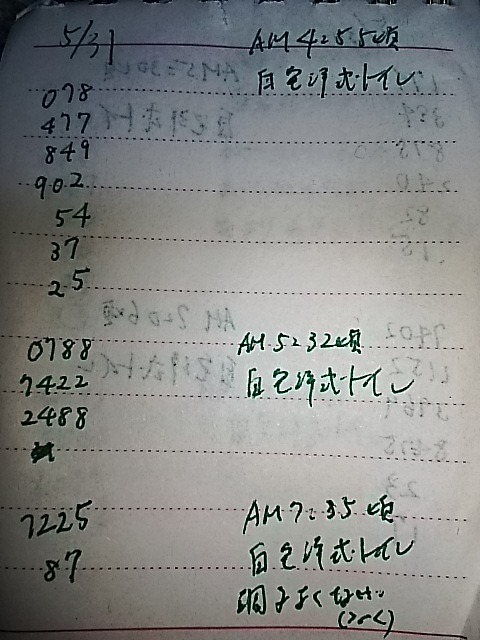 5/31 AM 4:55頃
自宅洋式トイレ
078
477
849
902
54
37
25
0788 AM 5:32頃
7422 自宅洋式トイレ
2488
7225 AM 7:35頃
87 自宅洋式トイレ
調子よくない